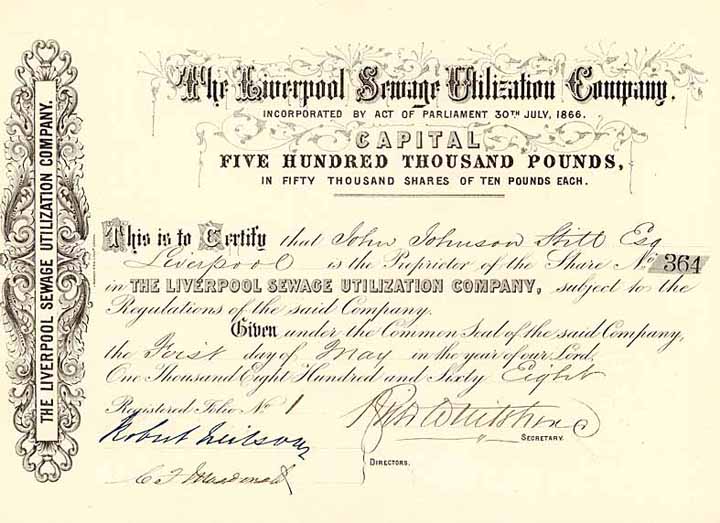 The Liverpool Sewage Utilization Company.
INCORPORATED BY ACT OF PARLIAMENT 30TH JULY, 1866.
CAPITAL
FIVE HUNDRED THOUSAND POUNDS,
IN FIFTY THOUSAND SHARES OF TEN POUNDS EACH.
THE LIVERPOOL SEWAGE UTILIZATION COMPANY.
This is to Certify that John Johnson Stitt Esq
Liverpool is the Proprietor of the Share No. 364
in THE LIVERPOOL SEWAGE UTILIZATION COMPANY, subject to the
Regulations of the said Company.
Given under the Common Seal of the said Company,
the First day of May in the year of our Lord,
One Thousand Eight Hundred and Sixty Eight
Registered Folio No. 1
SECRETARY.
Robert Neilson
C J Macdonald
DIRECTORS.